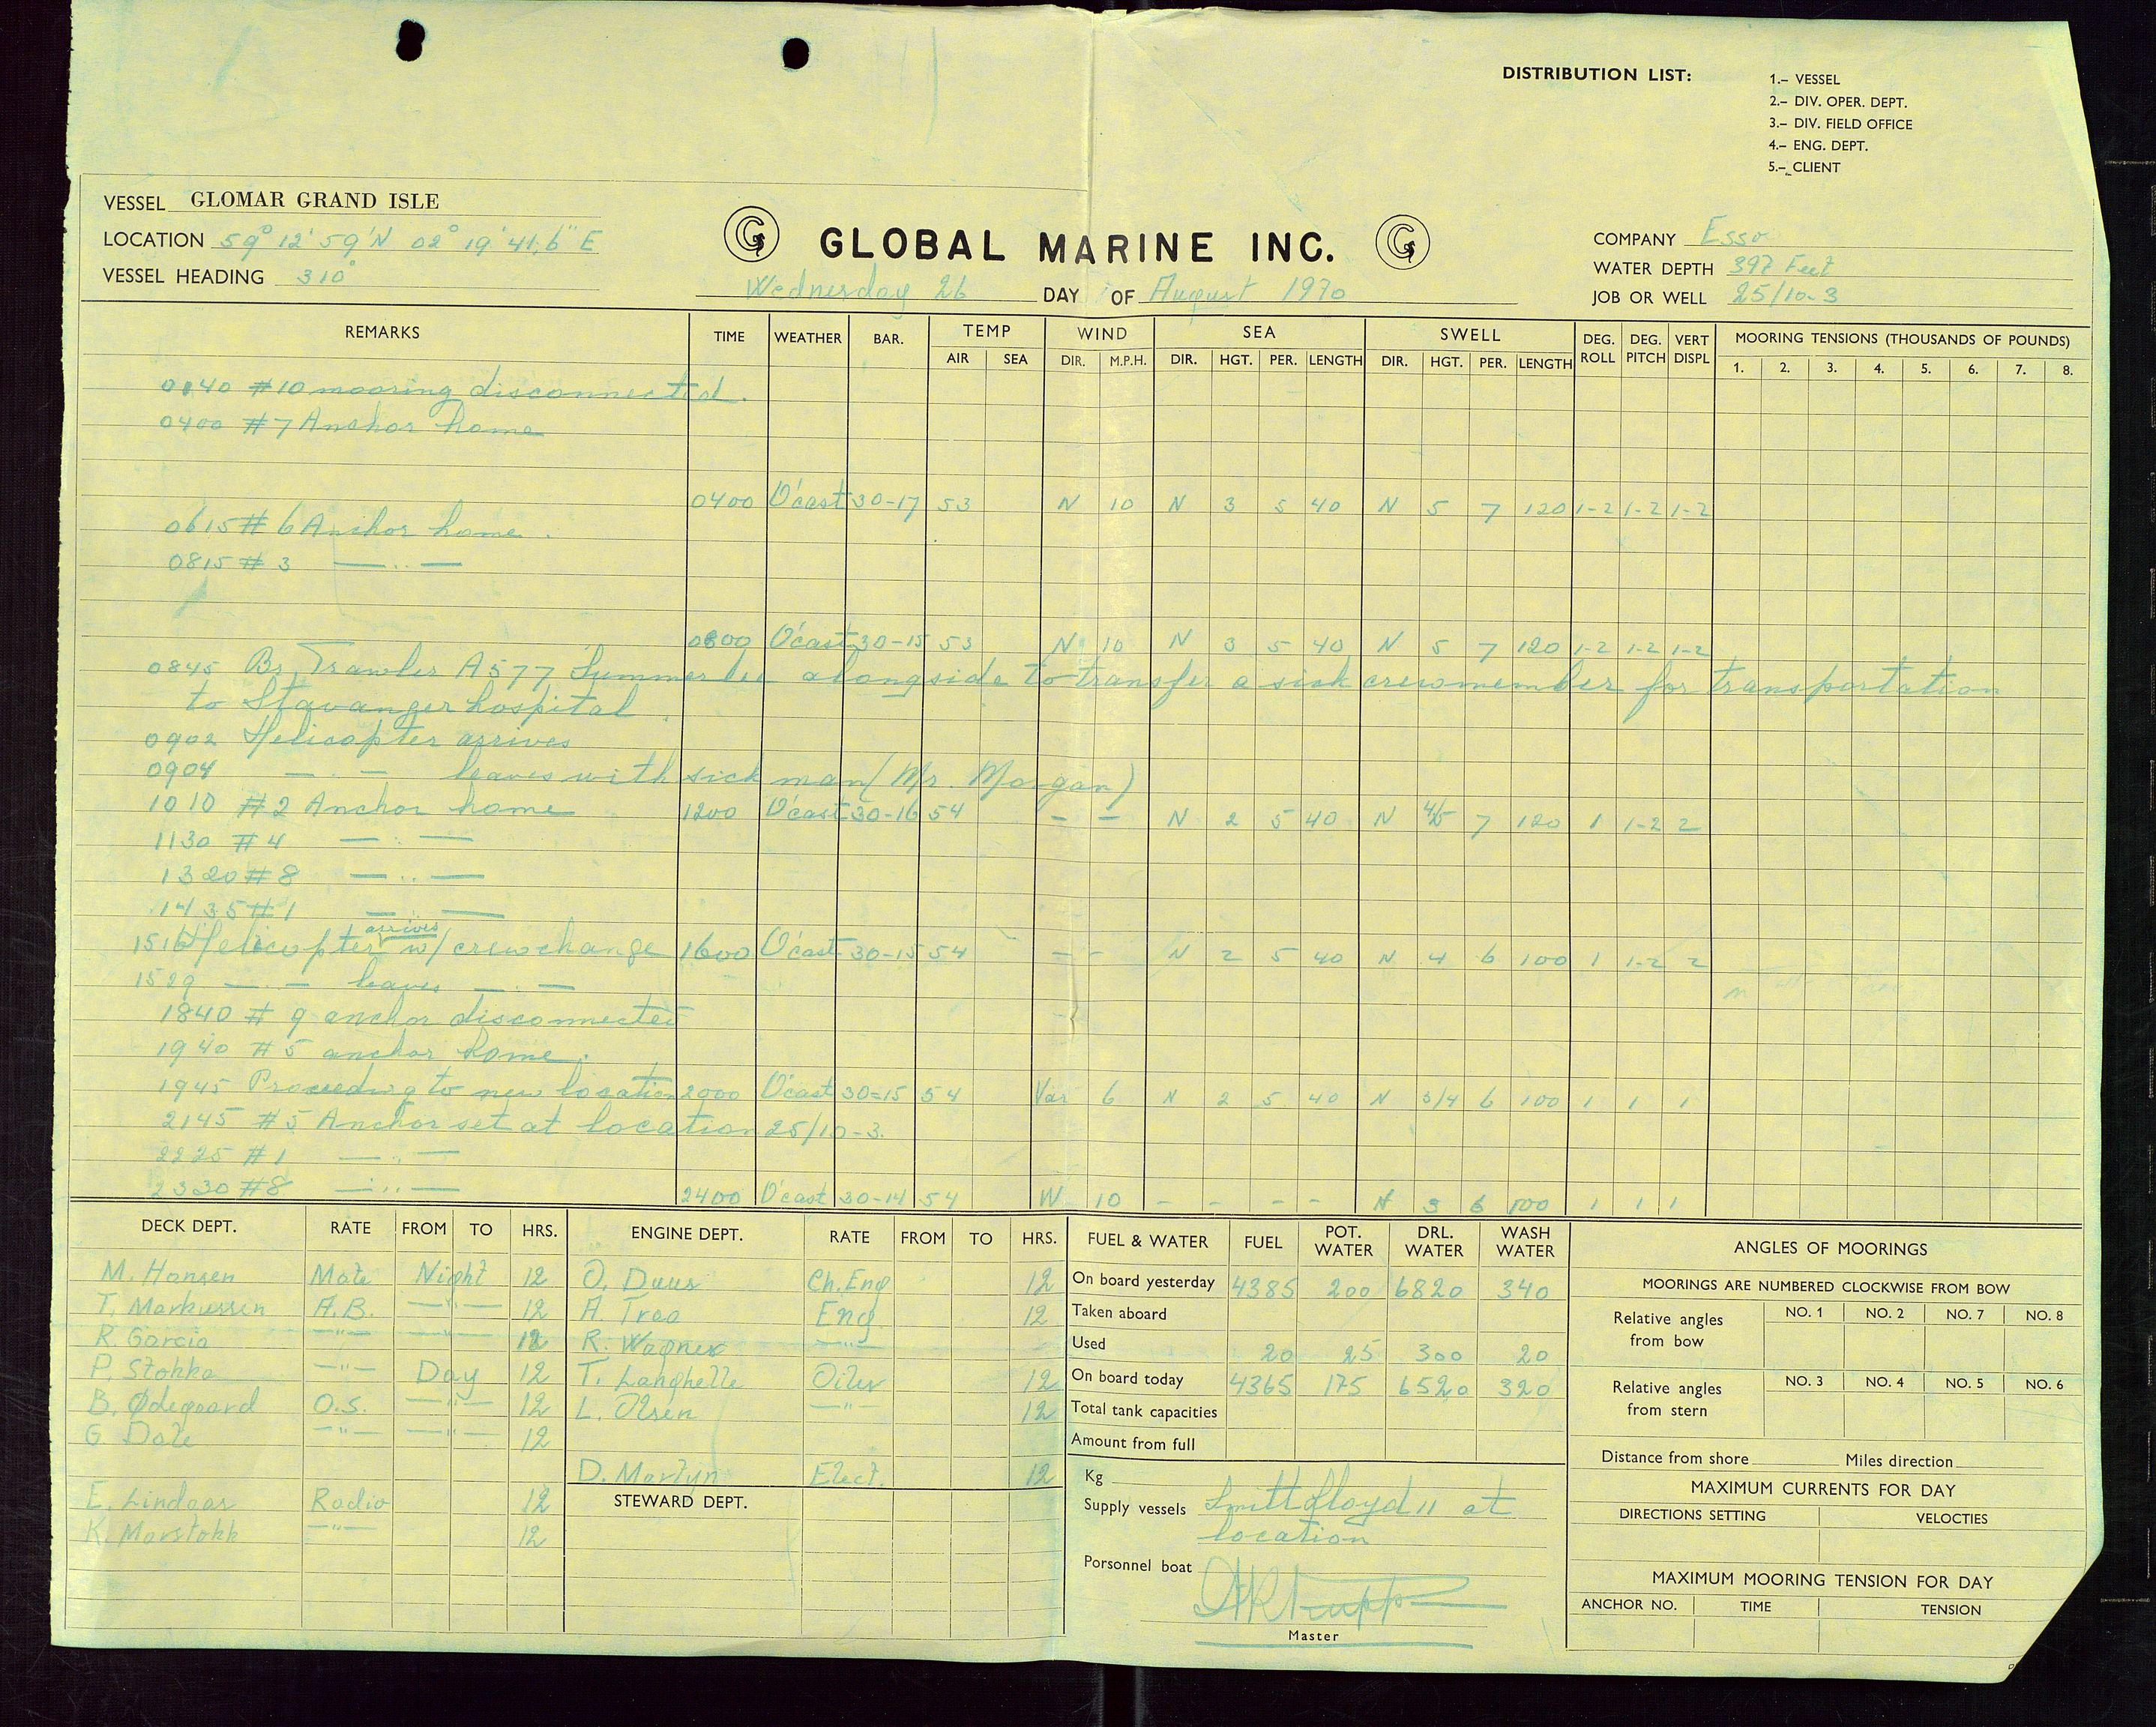 DISTRIBUTION LIST:
1.– VESSEL
2.– DIV. OPER. DEPT.
3.– DIV. FIELD OFFICE
4.– ENG. DEPT.
5.– CLIENT
VESSEL GLOMAR GRAND ISLE
LOCATION 59° 12' 59'N 02° 19' 41,6" E
VESSEL HEADING 310°
GLOBAL MARINE INC.
Wednesday 26 DAY OF August 1970
COMPANY Esso
WATER DEPTH 397 Feet
JOB OR WELL 25/10-3
REMARKS TIME WEATHER BAR. TEMP WIND SEA SWELL DEG. ROLL DEG. PITCH VERT DISPL MOORING TENSIONS (THOUSANDS OF POUNDS)
AIR SEA DIR. M.P.H. DIR. HGT. PER. LENGTH DIR. HGT. PER. LENGTH 1. 2. 3. 4. 5. 6. 7. 8.
0140 #10 mooring disconnected.
0400 #7 Anchor home
0400 O'cast 30-17 53 N 10 N 3 5 40 N 5 7 120 1-2 1-2 1-2
0615 # 6 Anchor home.
0815 # 3 — .. —
0800 O'cast 30-15 53 N 10 N 3 5 40 N 5 7 120 1-2 1-2 1-2
0845 Br. Trawler A577 Summerlee alongside to transfer a sick crewmember for transportation
to Stavanger hospital.
0902 Helicopter arrives
0904 — . — leaves with sick man (Mr. Morgan)
1010 #2 Anchor home 1200 O'cast 30-16 54 – – N 2 5 40 N 4/5 7 120 1 1-2 2
1130 #4 — .. —
1320 #8 — .. —
1435 #1 — .. —
1516 Helicopter arrives w/ crewchange 1600 O'cast 30-15 54 – – N 2 5 40 N 4 6 100 1 1-2 2
1529 — .. — leaves — .. —
1840 # 9 anchor disconnected
1940 #5 anchor home.
1945 Proceeding to new location 2000 O'cast 30=15 54 Var 6 N 2 5 40 N 3/4 6 100 1 1 1
2145 #5 Anchor set at location 25/10-3.
2225 #1 — .. —
2330 #8 — .. —
2400 O'cast 30-14 54 W 10 – – – – N 3 6 100 1 1 1
DECK DEPT. RATE FROM TO HRS.
M. Hansen Mate Night 12
T. Markussen A.B. —"— 12
R. Garcia —"— —"— 12
P. Stokka —"— Day 12
B. Ødegaard O.S. —"— 12
G Dale —"— —"— 12
E. Lindaas Radio 12
K. Marstokk —"— 12
ENGINE DEPT. RATE FROM TO HRS.
O. Duus Ch.Eng 12
A. Traa Eng 12
R. Wagner —"—
T. Langhelle Oiler 12
L. Olsen —"— 12
D. Martyn Elect. 12
STEWARD DEPT.
FUEL & WATER FUEL POT. WATER DRL. WATER WASH WATER
On board yesterday 4385 200 6820 340
Taken aboard
Used 20 25 300 20
On board today 4365 175 6520 320
Total tank capacities
Amount from full
Kg
Supply vessels Smitt Lloyd 11 at
location
Porsonnel boat
Master
ANGLES OF MOORINGS
MOORINGS ARE NUMBERED CLOCKWISE FROM BOW
Relative angles from bow NO. 1 NO. 2 NO. 7 NO. 8
Relative angles from stern NO. 3 NO. 4 NO. 5 NO. 6
Distance from shore Miles direction
MAXIMUM CURRENTS FOR DAY
DIRECTIONS SETTING VELOCTIES
MAXIMUM MOORING TENSION FOR DAY
ANCHOR NO. TIME TENSION